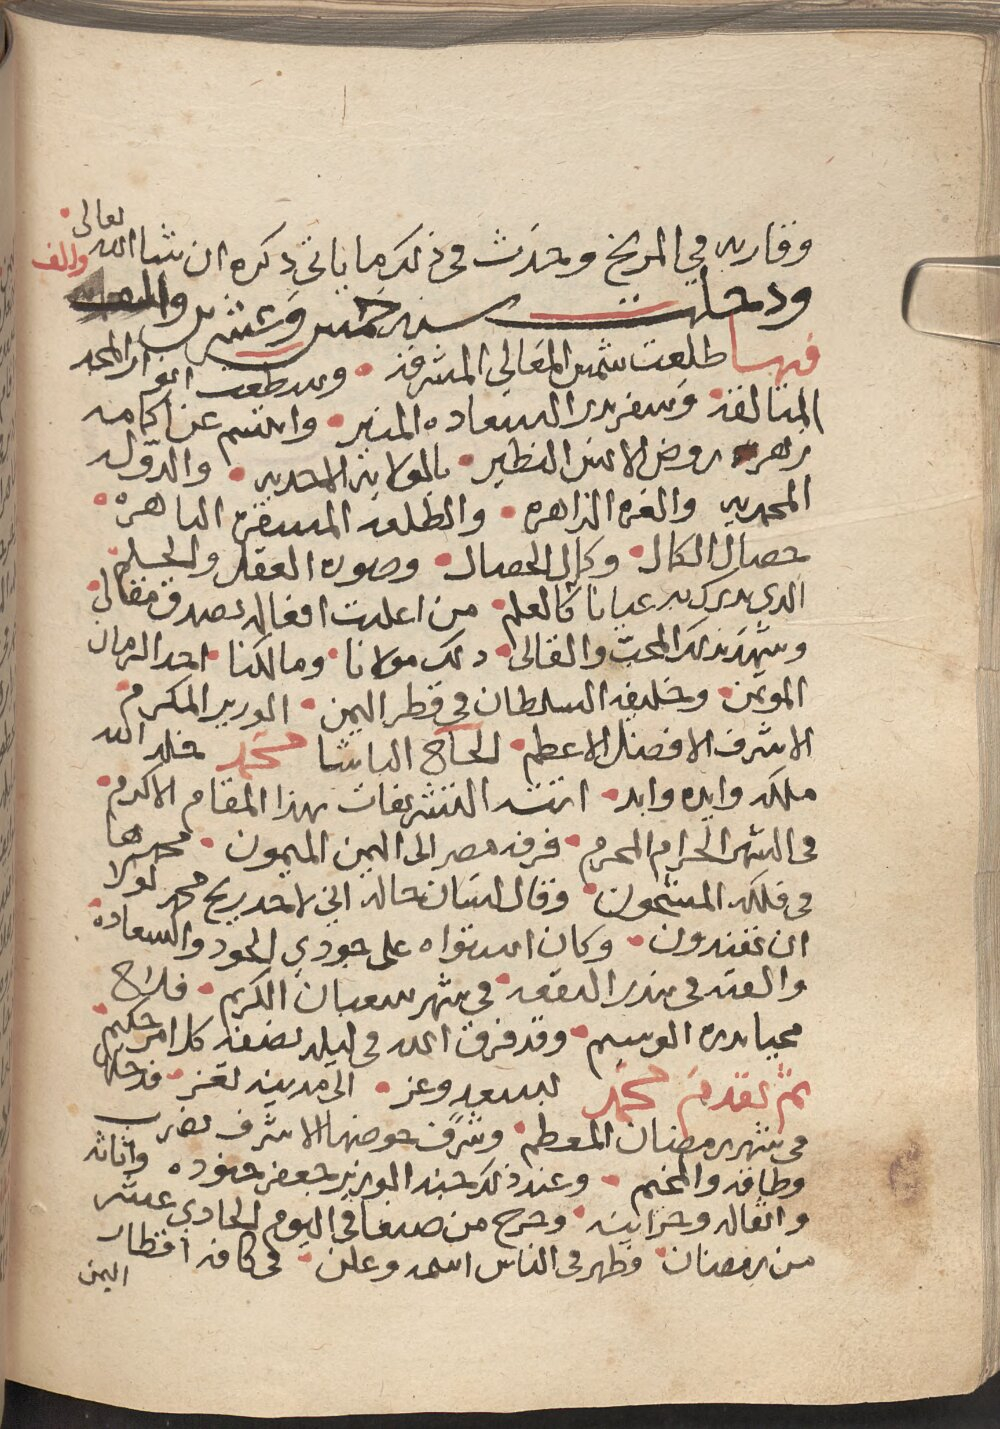 وقاربه في المريخ وحدث في ذلك ما ياتي ذكره ان شا الله تعالى
ودخلت سنه خمس وعشرين والف
فيها طلعت شمس المعالي المشرقه • وسطعت انوار المجد
المتالقه • وسفر بدر السعاده المنير • وابتسم عن اكمامه
زهر روض الانس النظير • بالولايه الاحديه • والدوله
المحمديه والغره الزاهره • والطلعه المسفره الباهره •
خصال الكمال • وكمال الخصال • وصوره العقل والحلم
الذي يدركه عيانا كالعلم • من اعلنت افعاله بصدق مقالي •
وشهد بذلك المحب والقالي • ذلك مولانا • ومالكنا • احد الزمان
الموتمن • وخليفه السلطان في قطر اليمن • الوزير المكرم •
الاشرف الافضل الاعظم • الحاج الباشا محمد خلد الله
ملكه وايده وابد • اتته التشريفات بهذا المقام الاكرم •
في الشهر الحرام المحرم • فرفه مصر الى اليمن الميمون • مجراها
في فلكه المشحون • وقال لسان حاله اني لاجد ريح محمد لولا
ان تفندون • وكان استواه على جودي الجود والسعاده •
والقته في بندر البقعه • في شهر شعبان الكريم • فلاح
محيا بدره الوسيم • وقد فرق الله في ليله نصفه كل امر حكيم •
ثم تقدم محمد لسعد وعز • الى مدينه تعز • فدخلها
في شهر رمضان المعظم • وشرف حوضها الاشرف بضرب
وطاقه والمخيم • وعند ذلك جند الوزير جعفر جنوده واثاثه
واثقاله وخزاينه • وخرج من صنعا في اليوم الحادي عشر
من رمضان • وظهر في الناس اسمه وعلن • في كافه اقطار
اليمن